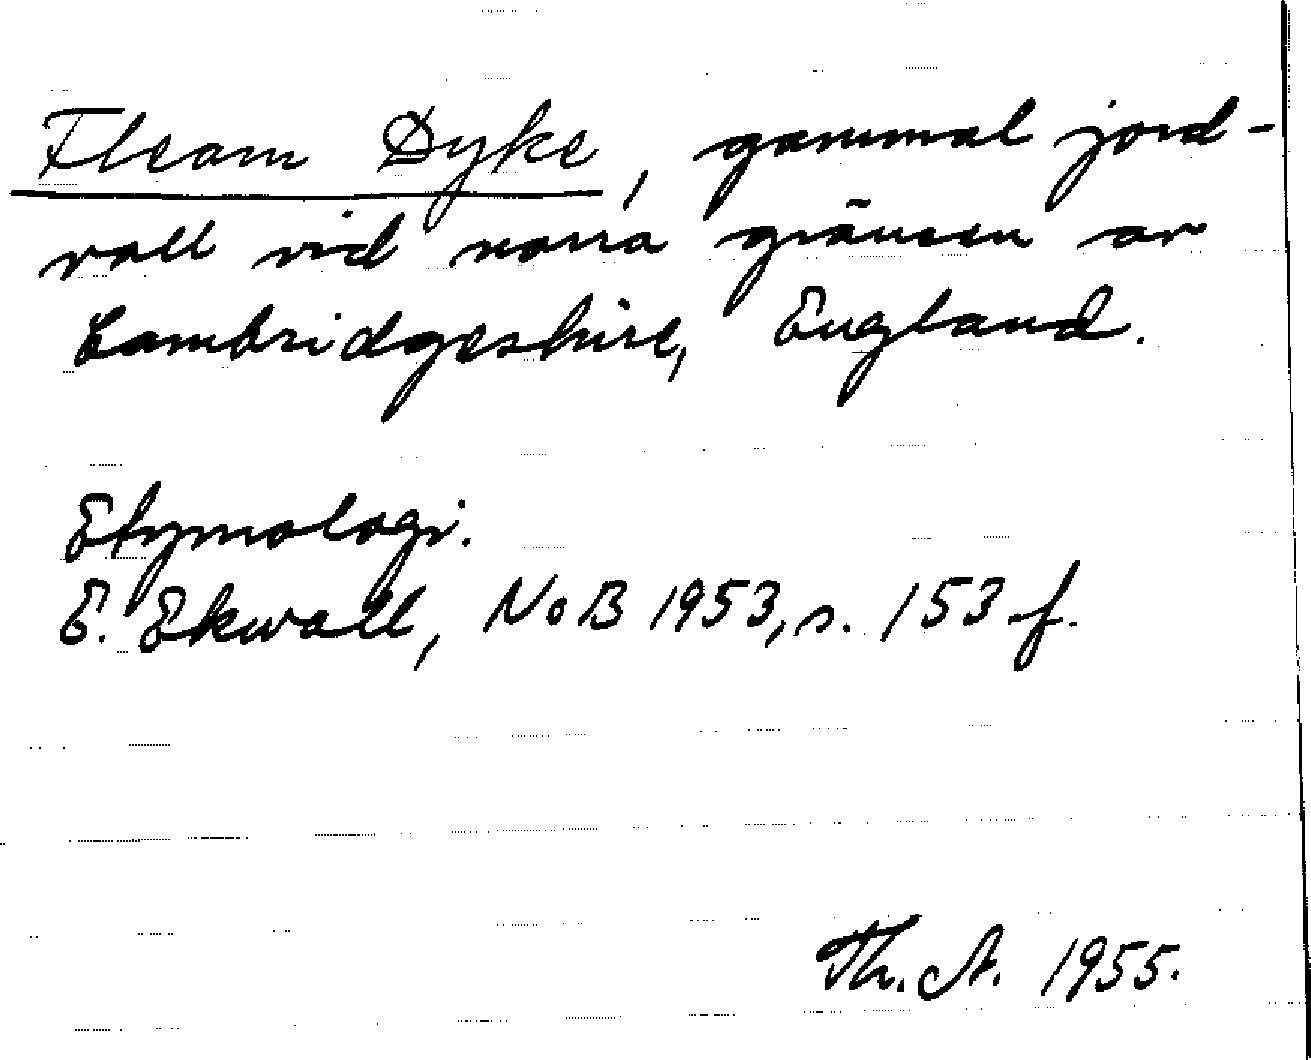 Fleam Dyke, gammal jord-
vall vid norra gränsen av
Cambridgeshire, England.
Etymologi.
E. Ekwall, NoB 1953, s. 153 f.
Th. A. 1955.